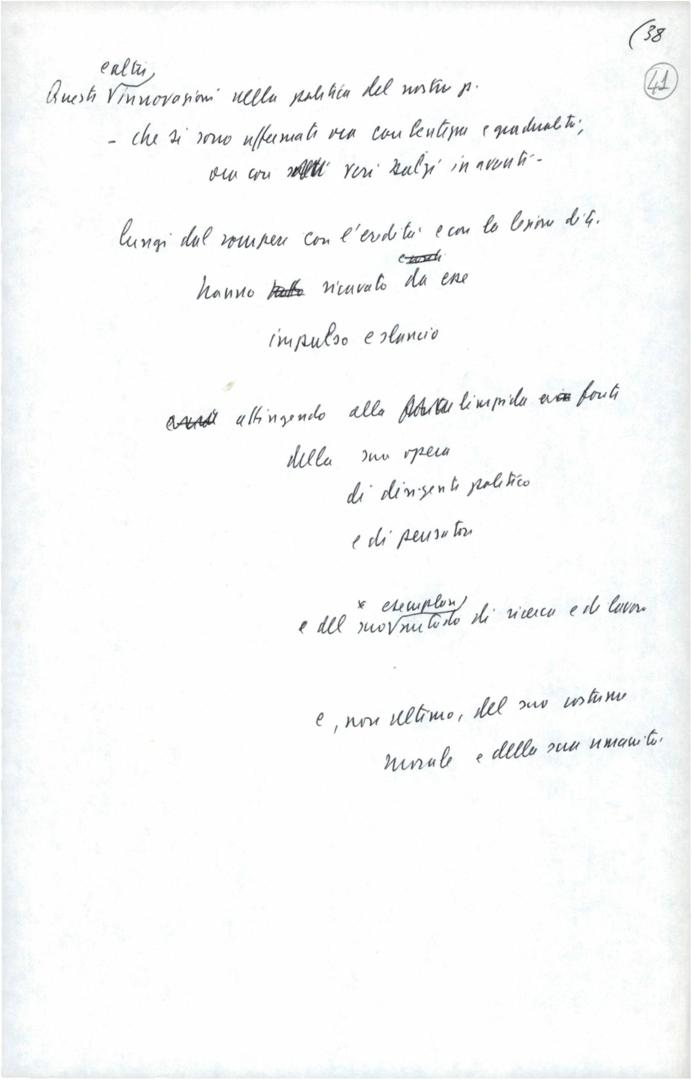 (38
41
e altre
Queste innovazioni nella politica del nostro p.
- che si sono affermate ora con lentezza e gradualità,
ora con veri balzi in avanti -
lungi dal rompere con l'eredità e con la lezione di G.
hanno ricavato da esse
impulso e slancio
attingendo alla limpida fonte
della sua opera
di dirigente politico
e di pensatore
* esemplare
e del suo metodo di ricerca e di lavoro
e, non ultimo, del suo costume
morale e della sua umanità.